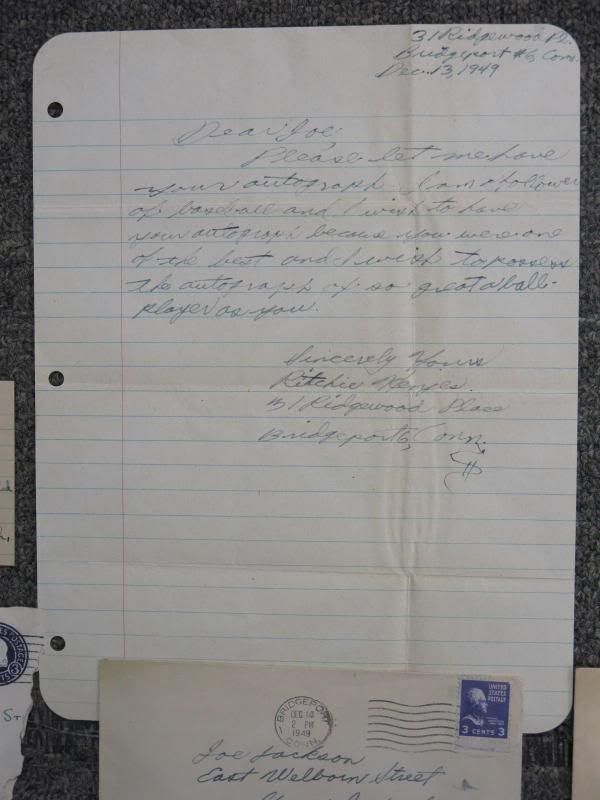 31 Ridgewood Pl.
Bridgeport #6, Conn.
Dec. 13, 1949
Dear Joe,
Please let me have
your autograph. I am a follower
of baseball and I wish to have
your autograph because you were one
of the best and I wish to possess
the autograph of so great a ball-
player as you.
Sincerely Yours
Ritchie
31 Ridgewood Place
Bridgeport 6, Conn.
BRIDGEPORT
DEC 14
2 PM
1949
CONN.
UNITED STATES POSTAGE
3 CENTS 3
Joe Jackson
East Welborn Street
St